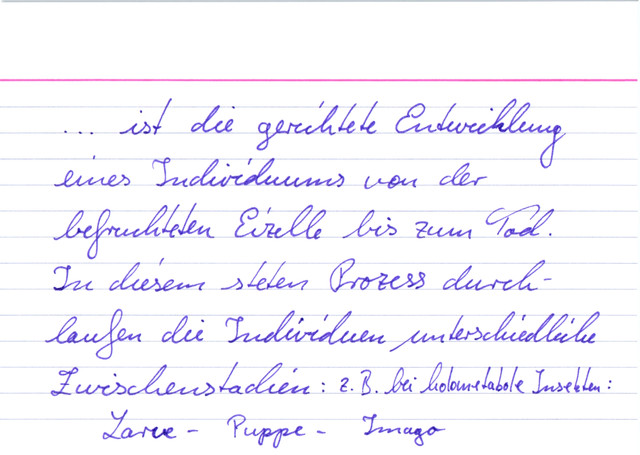 ... ist die gerichtete Entwicklung
eines Individuums von der
befruchteten Eizelle bis zum Tod.
In diesem steten Prozess durch-
laufen die Individuen unterschiedliche
Zwischenstadien: z.B. bei holometabole Insekten:
Larve - Puppe - Imago